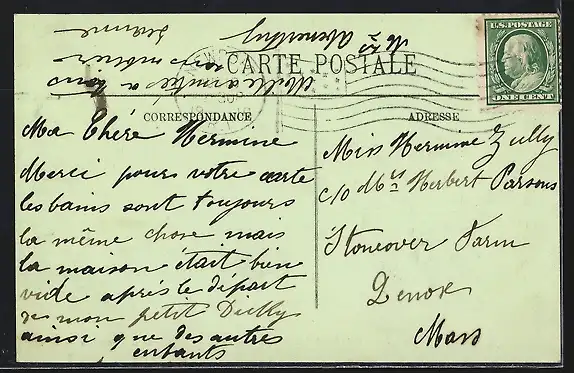 U.S. POSTAGE
ONE CENT
CARTE POSTALE
CORRESPONDANCE
ADRESSE
Ma Chére Hermine
Merci pour votre carte
les bains sont toujours
la même chose mais
la maison était bien
vide après le départ
de mon petit
ainsi que des autres
enfants
Mille amitiés a tous
Miss Hermine Zully
c/o Mrs Herbert Parsons
Stoneover Farm
Lenox
Mass